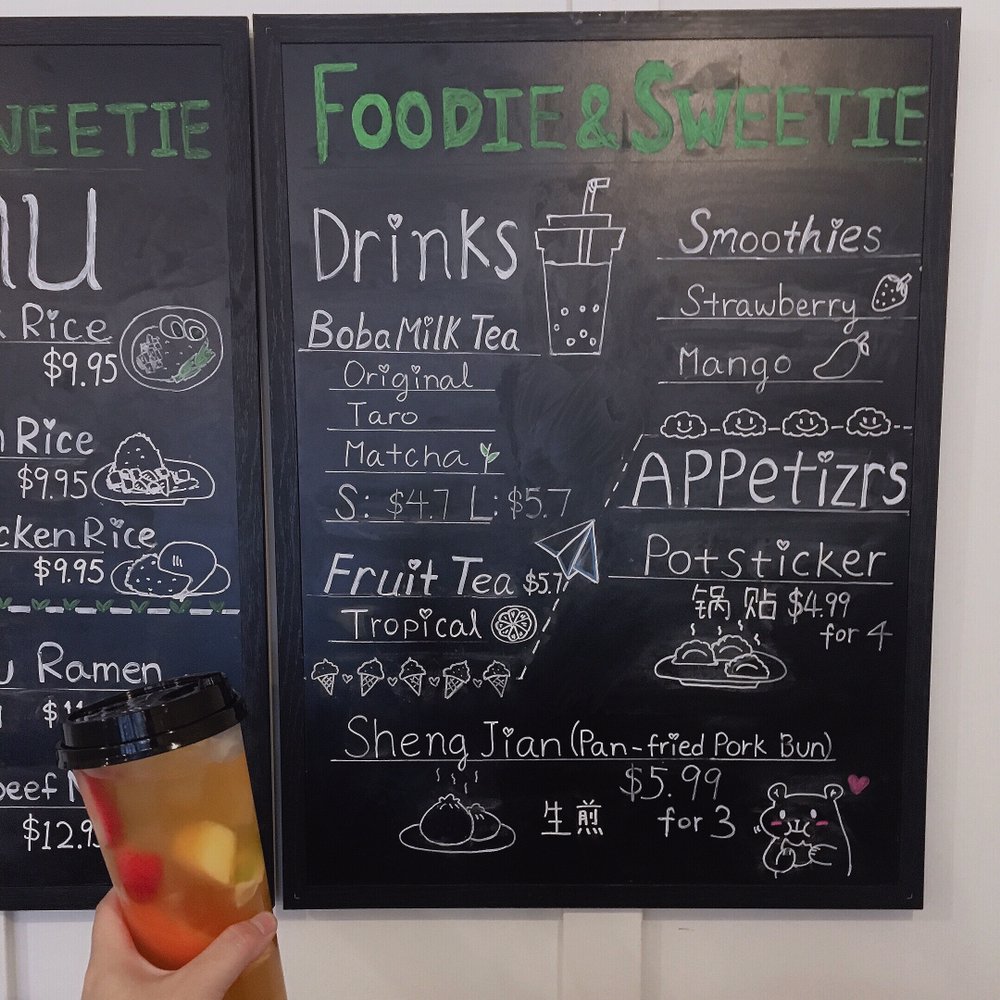 WEETIE
nu
Rice
$9.95
Rice
$9.95
ckenRice
$9.95
u Ramen
beef
$12.95
FOODIE & SWEETIE
Drinks
Boba Milk Tea
Original
Taro
Matcha
S: $4.7 L: $5.7
Fruit Tea $5.7
Tropical
Smoothies
Strawberry
Mango
APPetizrs
Potsticker
锅贴 $4.99
for 4
Sheng Jian (Pan-fried Pork Bun)
$5.99
生煎 for 3